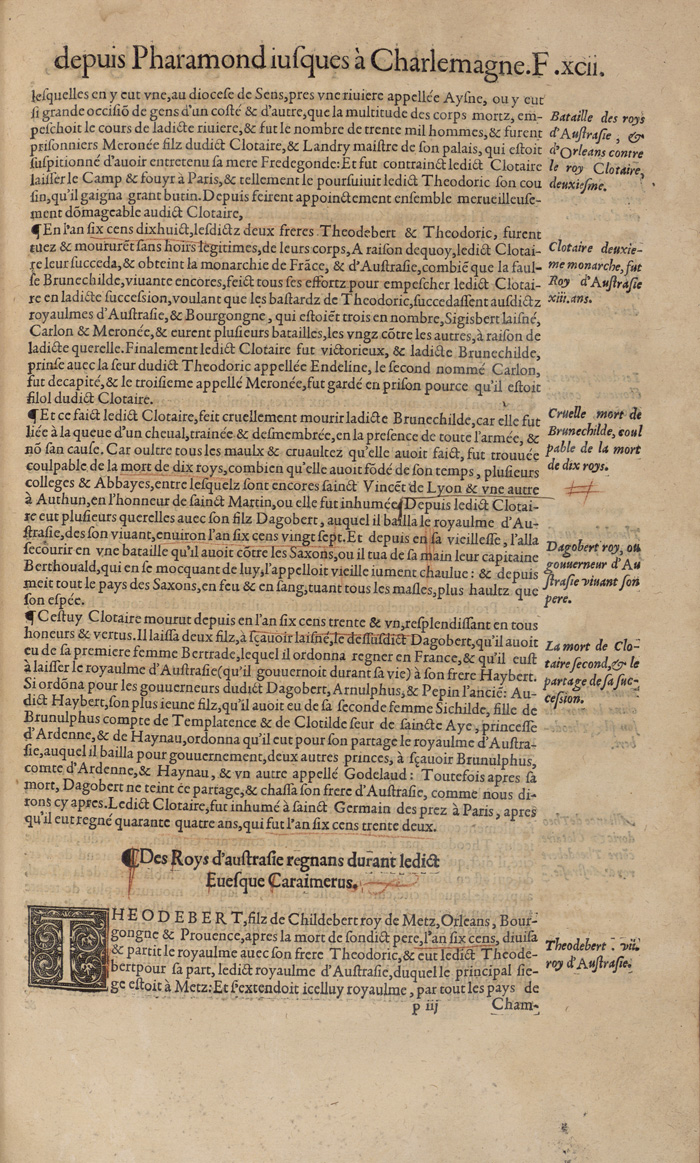 depuis Pharamond iusques à Charlemagne. F .xcii.
lesquelles en y eut vne, au diocese de Sens, pres vne riuiere appellée Aysne, ou y eut
si grande occisiõ de gens d'un costé & d'autre, que la multitude des corps mortz, em-
peschoit le cours de ladicte riuiere, & fut le nombre de trente mil hommes, & furent
prisonniers Meronée filz dudict Clotaire, & Landry maistre de son palais, qui estoit
suspitionné d'auoir entretenu sa mere Fredegonde: Et fut contrainct ledict Clotaire
laisser le Camp & fouyr à Paris, & tellement le poursuiuit ledict Theodoric son cou
sin, qu'il gaigna grant butin. Depuis feirent appoinctement ensemble merueilleuse-
ment dõmageable audict Clotaire,
Bataille des roys
d'Austrasie, &
d'Orleans contre
le roy Clotaire,
deuxiesme.
¶ En l'an six cens dixhuict, lesdictz deux freres Theodebert & Theodoric, furent
tuez & moururẽt sans hoirs legitimes, de leurs corps, A raison dequoy, ledict Clotai-
re leur succeda, & obteint la monarchie de Frãce, & d'Austrasie, combiẽ que la faul-
se Brunechilde, viuante encores, feict tous ses effortz pour empescher ledict Clotai-
re en ladicte succession, voulant que les bastardz de Theodoric, succedassent ausdictz
royaulmes d'Austrasie, & Bourgongne, qui estoiẽt trois en nombre, Sigisbert laisné,
Carlon & Meronée, & eurent plusieurs batailles, les vngz cõtre les autres, à raison de
ladicte querelle. Finalement ledict Clotaire fut victorieux, & ladicte Brunechilde,
prinse auec la seur dudict Theodoric appellée Endeline, le second nommé Carlon,
fut decapité, & le troisieme appellé Meronée, fut gardé en prison pource qu'il estoit
filol dudict Clotaire.
Clotaire deuxie-
me monarche, fut
Roy d'Austrasie
xiii. ans.
¶ Et ce faict ledict Clotaire, feit cruellement mourir ladicte Brunechilde, car elle fut
liée à la queue d'un cheual, trainée & desmembrée, en la presence de toute l'armée, &
nõ san cause. Car oultre tous les maulx & cruaultez qu'elle auoit faict, fut trouuée
coulpable de la mort de dix roys, combien qu'elle auoit fõdé de son temps, plusieurs
colleges & Abbayes, entre lesquelz sont encores sainct Vincẽt de Lyon & vne autre
à Authun, en l'honneur de sainct Martin, ou elle fut inhumée. Depuis ledict Clotai-
re eut plusieurs querelles auec son filz Dagobert, auquel il bailla le royaulme d'Au-
strasie, des son viuant, enuiron l'an six cens vingt sept. Et depuis en sa vieillesse, l'alla
secourir en vne bataille qu'il auoit cõtre les Saxons, ou il tua de sa main leur capitaine
Berthouald, qui en se mocquant de luy, l'appelloit vieille iument chaulue: & depuis
meit tout le pays des Saxons, en feu & en sang, tuant tous les masles, plus haultz que
son espée.
Cruelle mort de
Brunechilde, coul
pable de la mort
de dix roys.
Dagobert roy, ou
gouuerneur d'Au
strasie viuant son
pere.
¶ Cestuy Clotaire mourut depuis en l'an six cens trente & vn, resplendissant en tous
honeurs & vertus. Il laissa deux filz, à sçauoir laisné, le dessusdict Dagobert, qu'il auoit
eu de sa premiere femme Bertrade, lequel il ordonna regner en France, & qu'il eust
à laisser le royaulme d'Austrasie (qu'il gouuernoit durant sa vie) à son frere Haybert.
Si ordõna pour les gouuerneurs dudict Dagobert, Arnulphus, & Pepin l'anciẽ: Au-
dict Haybert, son plus ieune filz, qu'il auoit eu de sa seconde femme Sichilde, fille de
Brunulphus compte de Templatence & de Clotilde seur de saincte Aye, princesse
d'Ardenne, & de Haynau, ordonna qu'il eut pour son partage le royaulme d'Austra-
sie, auquel il bailla pour gouuernement, deux autres princes, à sçauoir Brunulphus,
comte d'Ardenne, & Haynau, & vn autre appellé Godelaud: Toutefois apres sa
mort, Dagobert ne teint ce partage, & chassa son frere d'Austrasie, comme nous di-
rons cy apres. Ledict Clotaire, fut inhumé à sainct Germain des prez à Paris, apres
qu'il eut regné quarante quatre ans, qui fut l'an six cens trente deux.
La mort de Clo-
taire second, & le
partage de sa suc-
cession.
¶ Des Roys d'austrasie regnans durant ledict
Euesque Caraimerus.
THEODEBERT, filz de Childebert roy de Metz, Orleans, Bour-
gongne & Prouence, apres la mort de sondict pere, l'an six cens, diuisa
& partit le royaulme auec son frere Theodoric, & eut ledict Theode-
bert pour sa part, ledict royaulme d'Austrasie, duquel le principal sie-
ge estoit à Metz: Et s'extendoit icelluy royaulme, par tout les pays de
Theodebert. vii.
roy d'Austrasie.
p iij
Cham-